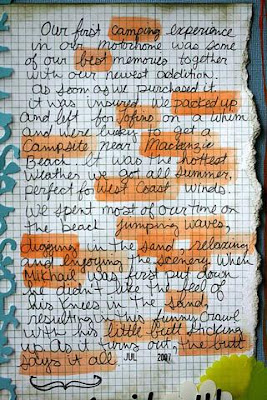 Our first camping experience
in our motorhome was some
of our best memories together
with our newest addition.
As soon as we purchased it
it was insured, we packed up
and left for Tofino on a whim
and were lucky to get a
Campsite near Mackenzie
Beach. It was the hottest
weather we got all summer,
perfect for West Coast winds.
We spent most of our time on
the beach jumping waves,
digging in the sand, relaxing
and enjoying the scenery. When
Mikhail was first put down
he didn't like the feel of
his knees in the sand,
resulting in this funny crawl
with his little butt sticking
up. As it turns out, the butt
says it all. JUL 2007